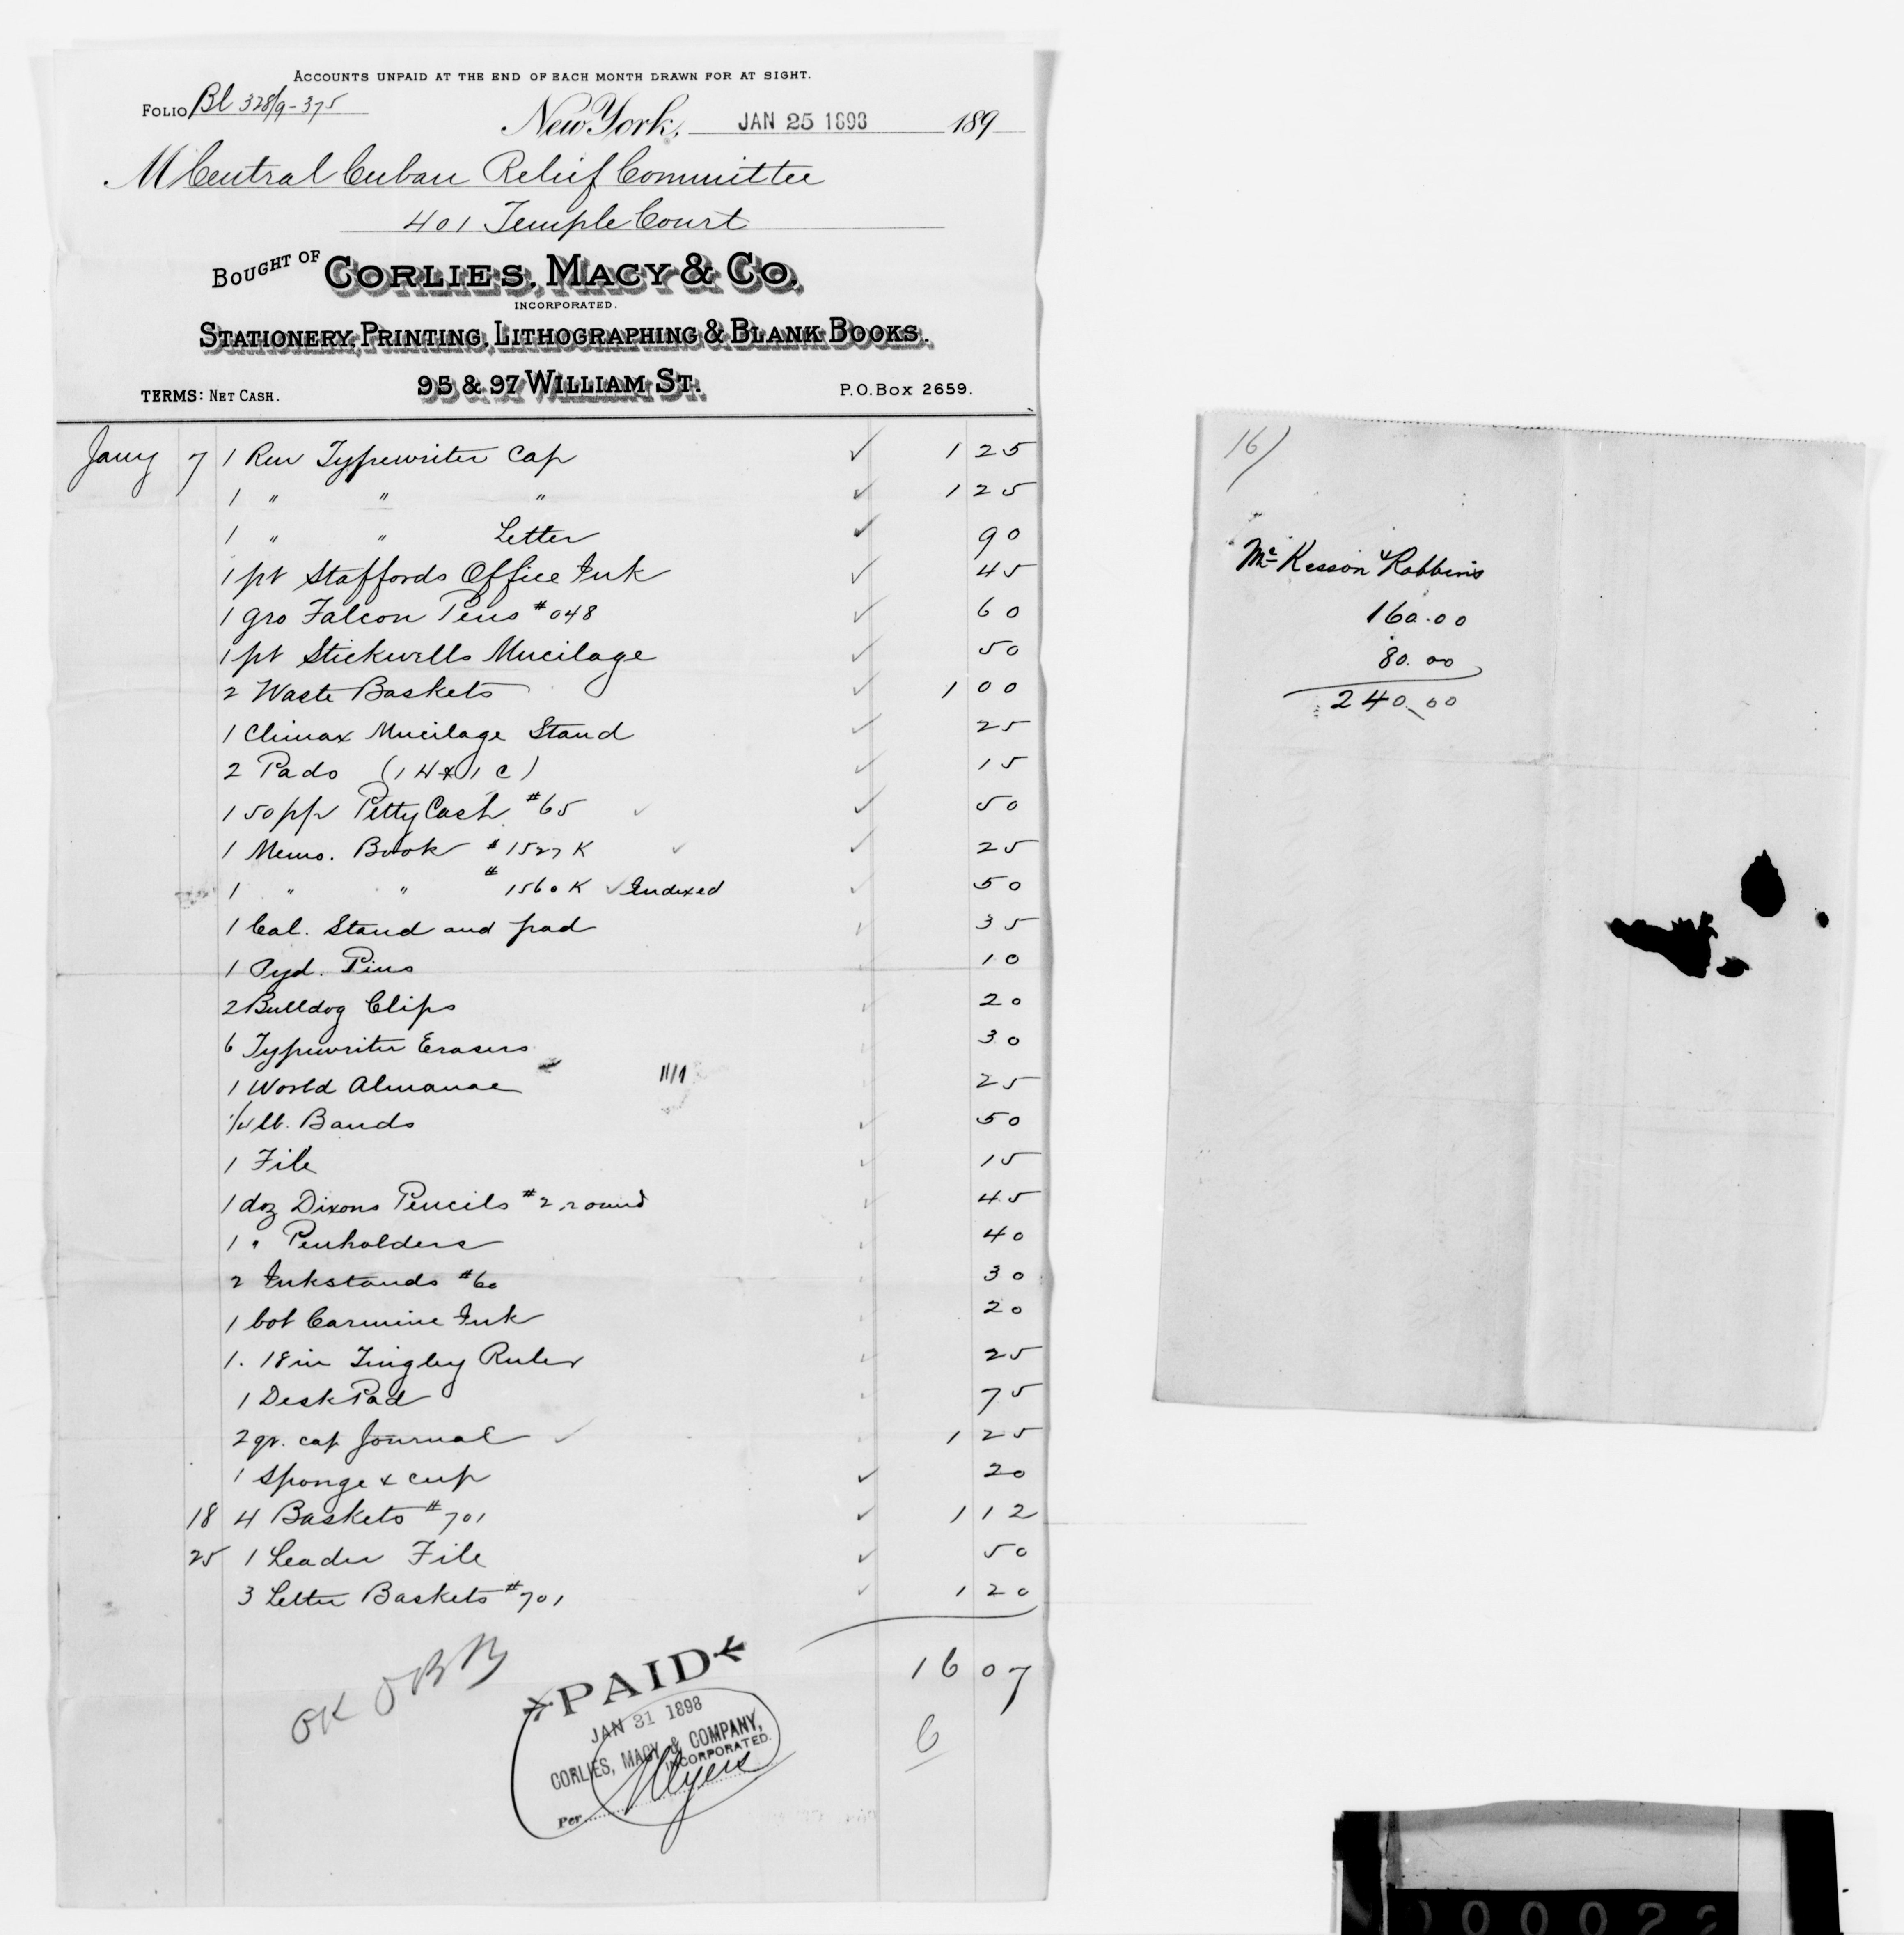 ACCOUNTS UNPAID AT THE END OF EACH MONTH DRAWN FOR AT SIGHT.
FOLIO Bl 328/9-375
New York, JAN 25 1898 189
M Central Cuban Relief Committee
401 Temple Court
BOUGHT OF CORLIES, MACY & CO.
INCORPORATED.
STATIONERY, PRINTING, LITHOGRAPHING & BLANK BOOKS.
95 & 97 WILLIAM ST.
TERMS: NET CASH.
P.O. BOX 2659.
Jany 7 1 Rm Typewriter Cap ✓ 1 25
1 " " " ✓ 1 25
1 " " Letter ✓ 90
1 pt Staffords Office Ink ✓ 45
1 gro Falcon Pens #048 ✓ 60
1 pt Stickwells Mucilage ✓ 50
2 Waste Baskets ✓ 1 00
1 Climax Mucilage Stand ✓ 25
2 Pads (1 H & 1 C) ✓ 15
1 50 pp Petty Cash #65 ✓ ✓ 50
1 Memo. Book #1527 K ✓ ✓ 25
1 " " #1560 K ✓ Indexed ✓ 50
1 Cal. Stand and pad 35
1 Pyd. Pins 10
2 Bulldog Clips 20
6 Typewriter Erasers 30
1 World Almanac 25
1/4 lb. Bands ✓ 50
1 File ✓ 15
1 doz Dixons Pencils #2 round ✓ 45
1 " Penholders 40
2 Inkstands #60 30
1 bot Carmine Ink 20
1. 18 in Tingley Ruler ✓ 25
1 Desk Pad 75
2 qr. cap Journal ✓ 1 25
1 Sponge & cup ✓ 20
18 4 Baskets #701 ✓ 1 12
25 1 Leader File ✓ 50
3 Letter Baskets #701 ✓ 1 20
16 07
OK
PAID
JAN 31 1898
CORLIES, MACY & COMPANY,
INCORPORATED.
Per Myers
6
16)
McKesson & Robbins
160.00
80.00
240.00